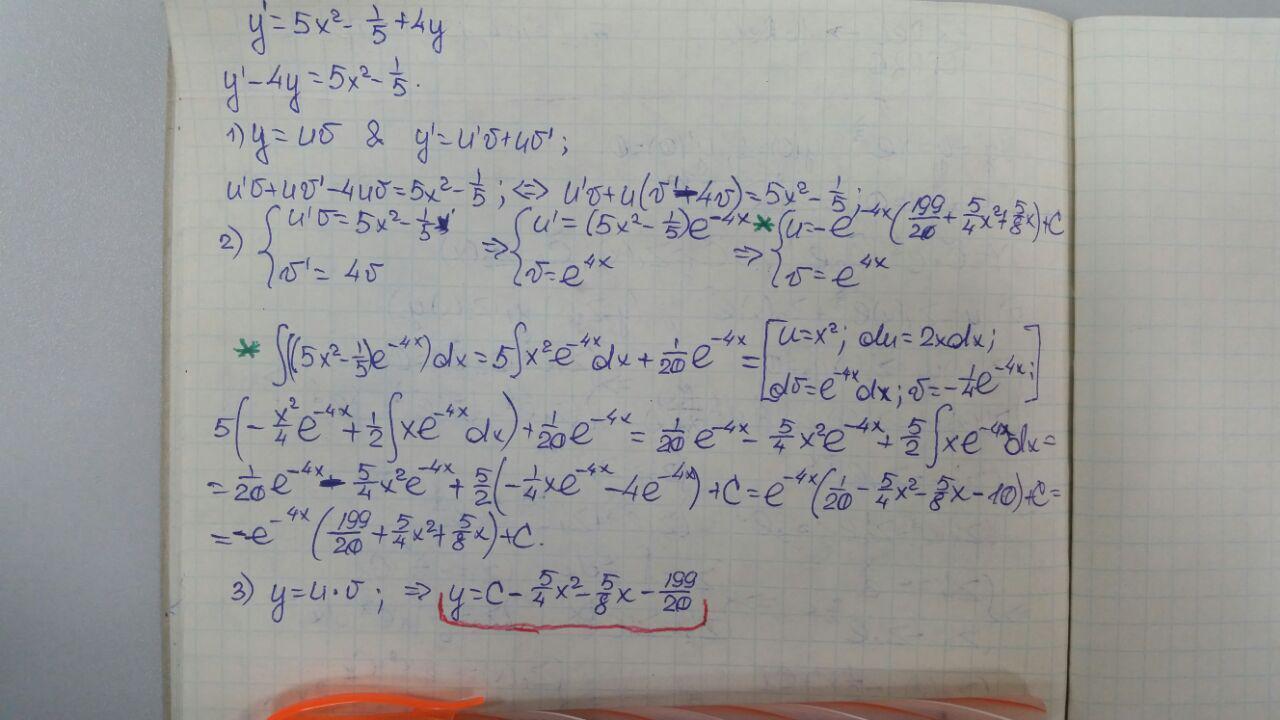 y' = 5x² - 1/5 + 4y
y' - 4y = 5x² - 1/5.
1) y = uv & y' = u'v + uv';
u'v + uv' - 4uv = 5x² - 1/5; <=> u'v + u(v' - 4v) = 5x² - 1/5;
2) { u'v = 5x² - 1/5 => { u' = (5x² - 1/5)e^(-4x) * => { u = -e^(-4x)(199/20 + 5/4x² + 5/8x) + C
v' = 4v v = e^(4x) v = e^(4x)
* ∫((5x² - 1/5)e^(-4x))dx = 5∫x²e^(-4x)dx + 1/20 e^(-4x) = [u = x²; du = 2xdx;
dv = e^(-4x)dx; v = -1/4 e^(-4x);]
5(-x²/4 e^(-4x) + 1/2∫xe^(-4x)dx) + 1/20 e^(-4x) = 1/20 e^(-4x) - 5/4 x²e^(-4x) + 5/2∫xe^(-4x)dx =
= 1/20 e^(-4x) - 5/4 x²e^(-4x) + 5/2(-1/4 xe^(-4x) - 4e^(-4x)) + C = e^(-4x)(1/20 - 5/4x² - 5/8x - 10) + C =
= -e^(-4x)(199/20 + 5/4x² + 5/8x) + C.
3) y = u · v; => y = C - 5/4x² - 5/8x - 199/20